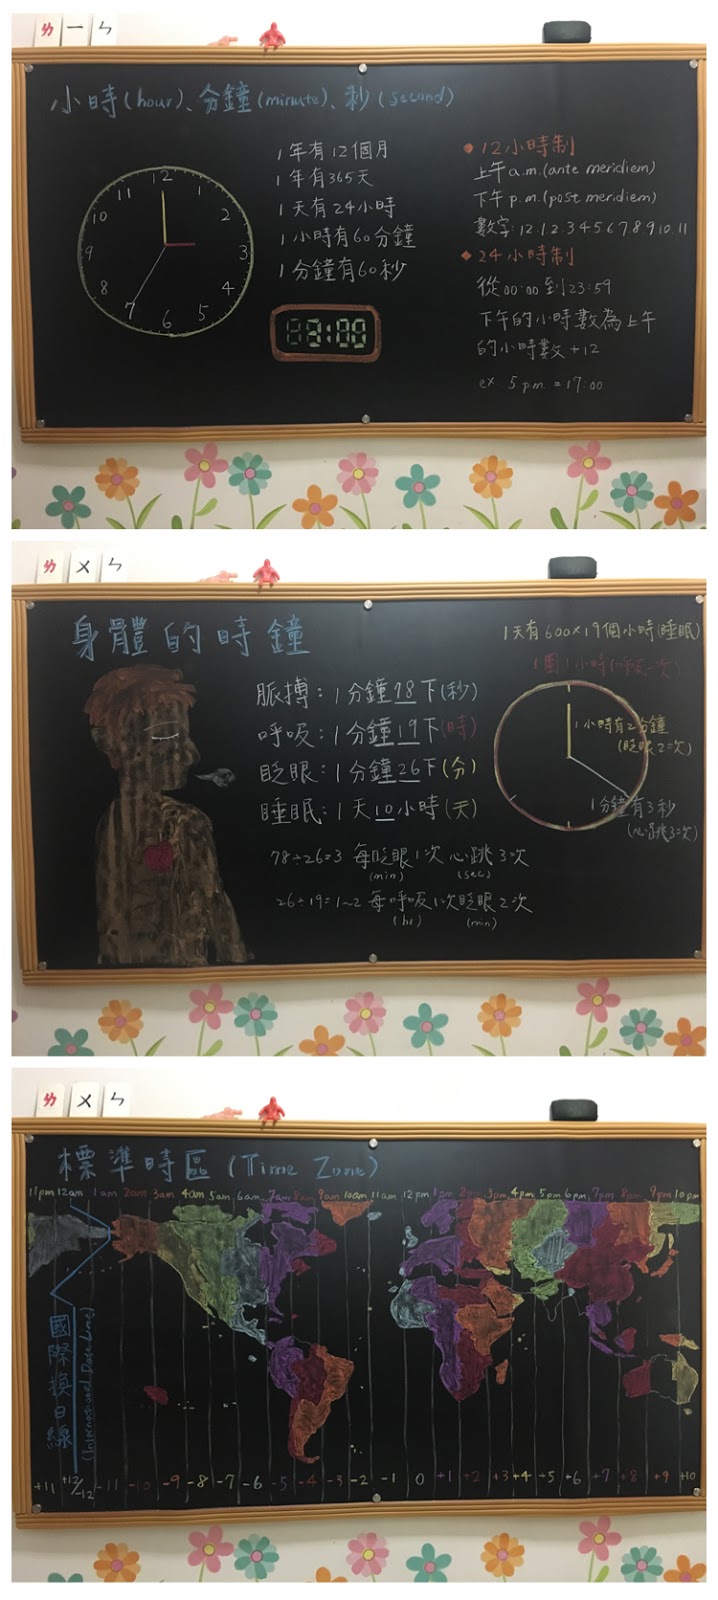 ㄌ一ㄣ
小時(hour)、分鐘(minute)、秒(second)
12
1
2
3
4
5
6
7
8
9
10
11
1年有12個月
1年有365天
1天有24小時
1小時有60分鐘
1分鐘有60秒
3:00
◆12小時制
上午a.m.(ante meridiem)
下午p.m.(post meridiem)
數字:12.1.2.3.4 5 6 7 8 9 10.11
◆24小時制
從00:00到23:59
下午的小時數為上午
的小時數+12
ex 5 p.m. = 17:00
ㄌㄨㄣ
身體的時鐘
脈搏:1分鐘78下(秒)
呼吸:1分鐘19下(時)
眨眼:1分鐘26下(分)
睡眠:1天10小時(天)
78÷26=3 每眨眼1次心跳3次
(min) (sec)
26÷19=1~2 每呼吸1次眨眼2次
(hr) (min)
1天有600×19個小時(睡眠)
1圈1小時(呼吸一次)
1小時有2分鐘
(眨眼2次)
1分鐘有3秒
(心跳3次)
ㄌㄨㄣ
標準時區(Time Zone)
11pm 12am 1am 2am 3am 4am 5am 6am 7am 8am 9am 10am 11am 12pm 1pm 2pm 3pm 4pm 5pm 6pm 7pm 8pm 9pm 10pm
國際換日線
(International Date Line)
+11 +12/-12 -11 -10 -9 -8 -7 -6 -5 -4 -3 -2 -1 0 +1 +2 +3 +4 +5 +6 +7 +8 +9 +10